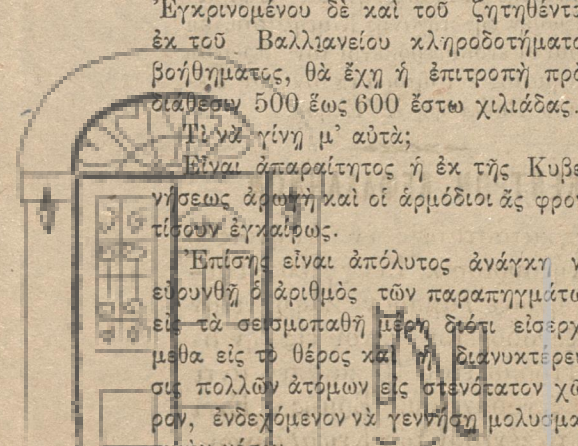 Ἐγκρινομένου δὲ καὶ τοῦ ζητηθέντ
ἐκ τοῦ Βαλλιανείου κληροδοτήματο
βοήθηματος, θὰ ἔχῃ ἡ ἐπιτροπὴ πρὸ
διάθεσιν 500 ἕως 600 ἔστω χιλιάδας.
Τὶ νὰ γίνῃ μ’ αὐτὰ;
Εἶναι ἀπαραίτητος ἡ ἐκ τῆς Κυβε
νήσεως ἀρωγὴ καὶ οἱ ἁρμόδιοι ἄς φρον
τίσουν ἐγκαίρως.
Ἐπίσης εἶναι ἀπόλυτος ἀνάγκη ν
εὐρυνθῇ ὁ ἀριθμὸς τῶν παραπηγμάτω
εἰς τὰ σεισμοπαθῆ μέρη διότι εἰσερχ
μεθα εἰς τὸ θέρος καὶ ἡ διανυκτέρευ
σις πολλῶν ἀτόμων εἰς στενότατον χῶ
ρον, ἐνδεχόμενον νὰ γεννήσῃ μολυσμα